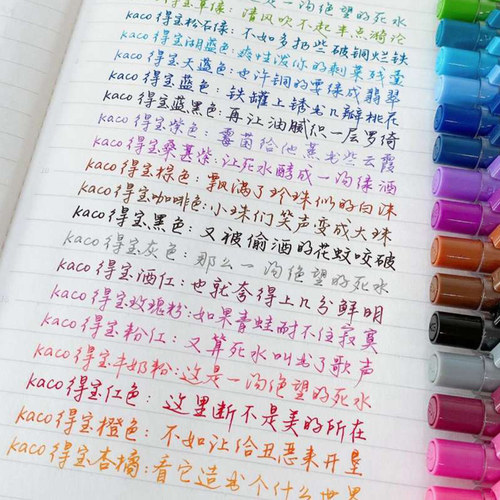 一沟绝望的死水
得宝草绿：清风吹不起半点漪沦
kaco得宝松石绿：不如多扔些破铜烂铁
kaco得宝湖蓝色：爽性泼你的剩菜残羹
kaco得宝天蓝色：也许铜的要绿成翡翠
kaco得宝蓝色：铁罐上锈出几瓣桃花
kaco得宝蓝黑色：再让油腻织一层罗绮
kaco得宝紫色：霉菌给他蒸出些云霞
kaco得宝桑葚紫：让死水酵成一沟绿酒
kaco得宝棕色：飘满了珍珠似的白沫
kaco得宝咖啡色：小珠们笑声变成大珠
kaco得宝黑色：又被偷酒的花蚊咬破
kaco得宝灰色：那么一沟绝望的死水
kaco得宝酒红：也就夸得上几分鲜明
kaco得宝玫瑰粉：如果青蛙耐不住寂寞
kaco得宝粉红：又算死水叫出了歌声
kaco得宝牛奶粉：这是一沟绝望的死水
kaco得宝红色：这里断不是美的所在
kaco得宝橙色：不如让给丑恶来开垦
kaco得宝杏橘：看它造出个什么世界